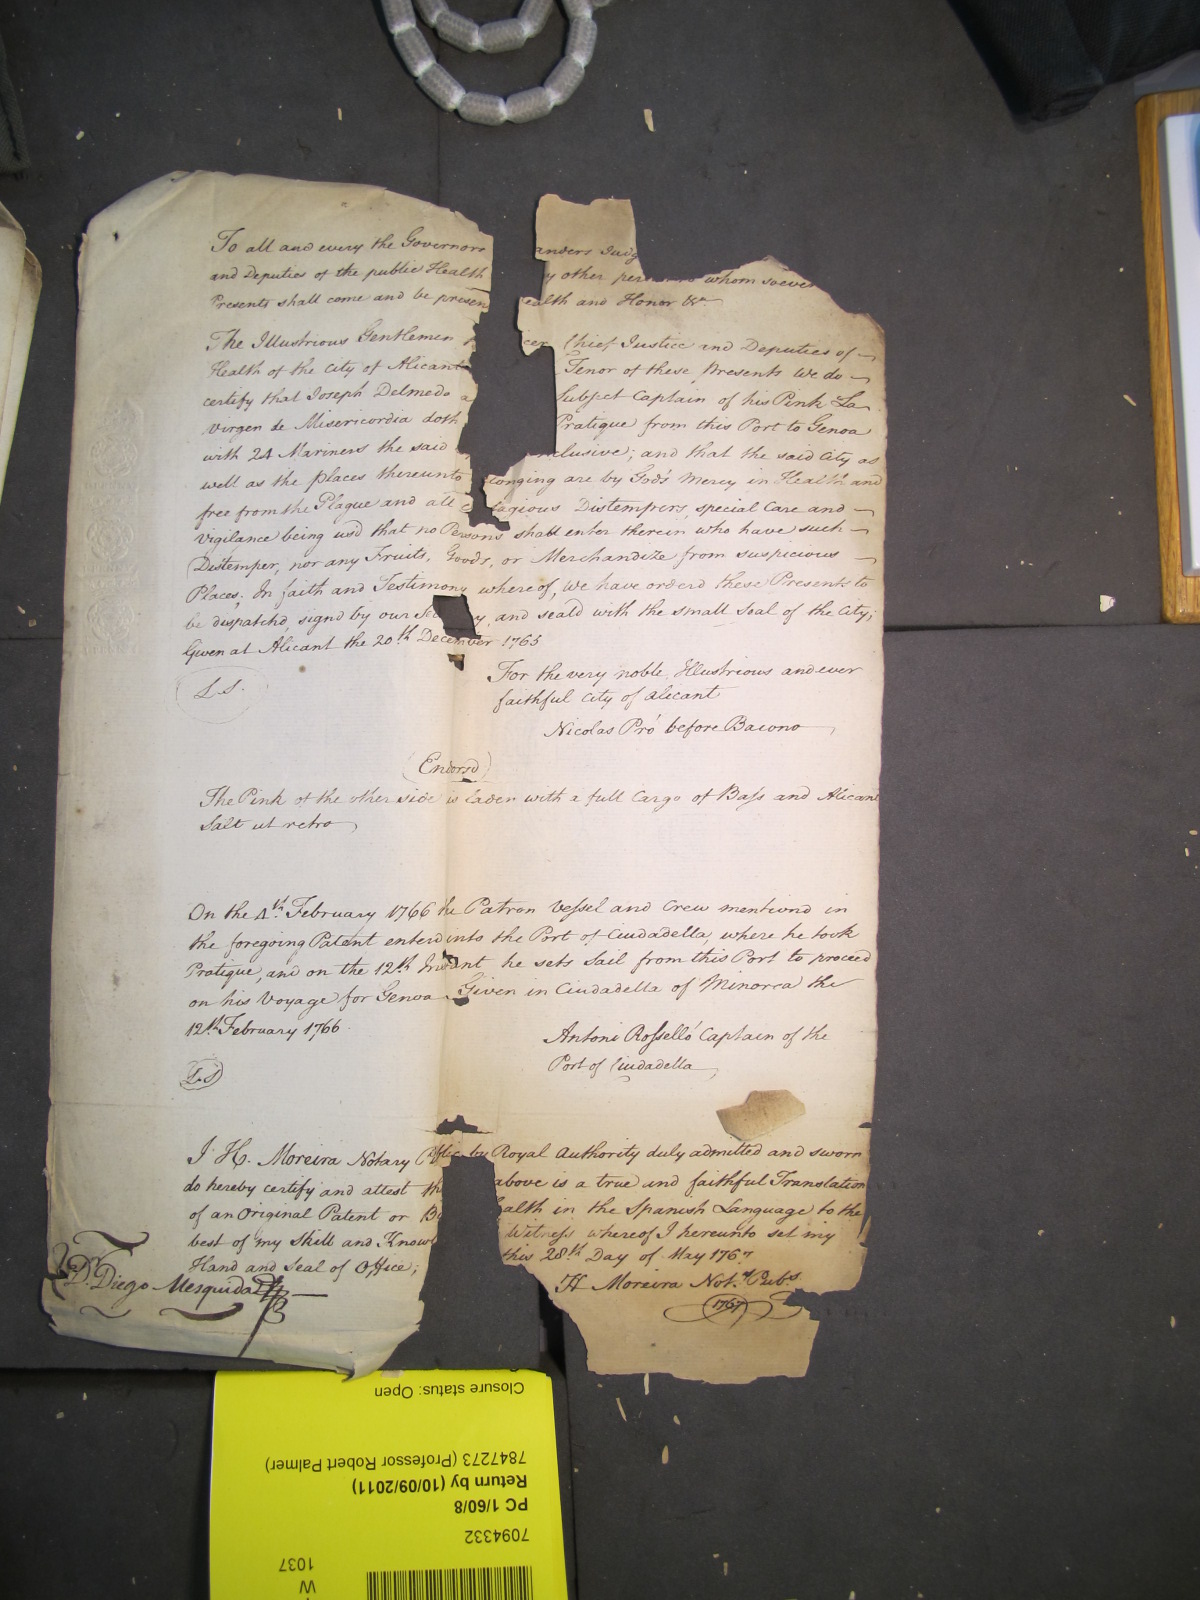 To all and every the Governors anders Judg
and Deputies of the public Health y other persons whom soever
Presents shall come and be presen ealth and Honor &c
The Illustrious Gentlemen cer Chief Justice and Deputies of
Health of the City of Alicant Tenor of these Presents We do
certify that Joseph Delmedo a Subject Captain of his Pink La
Virgen de Misericordia doth Pratique from this Port to Genoa
with 24 Mariners the said nclusive; and that the said City as
well as the places thereunto longing are by God's Mercy in Health and
free from the Plague and all c tagious Distempers, special Care and
vigilance being usd that no Persons shall enter therein who have such
Distemper, nor any Fruits, Goods, or Merchandize from suspicious
Places; In faith and Testimony whereof, we have orderd these Presents to
be dispatchd, signd by our Se y, and seald with the small Seal of the City;
Given at Alicant the 20th December 1765
L.S.
For the very noble, Illustrious and ever
faithful City of Alicant
Nicolas Pró before Bacono
(Endorsd)
The Pink of the other side is laden with a full Cargo of Bass and Alicant
Salt ut retro
On the 4th February 1766 he Patron Vessel and Crew mentiond in
the foregoing Patent enterd into the Port of Ciudadella, where he took
Pratique, and on the 12th Instant he sets Sail from this Port to proceed
on his Voyage for Genoa Given in Ciudadella of Minorca the
12th February 1766
Antoni Rosselló Captain of the
Port of Ciudadella
L.S
I H. Moreira Notary Public by Royal Authority duly admitted and sworn
do hereby certify and attest th above is a true and faithful Translation
of an Original Patent or B ealth in the Spanish Language to the
best of my Skill and Know Witness whereof I hereunto set my
Hand and Seal of Office; this 28th Day of May 1767
H Moreira Not.y Pub.s
1767
D. Diego Mesquida
Closure status: Open
7847273 (Professor Robert Palmer)
Return by (10/09/2011)
PC 1/60/8
7094332
1037
W